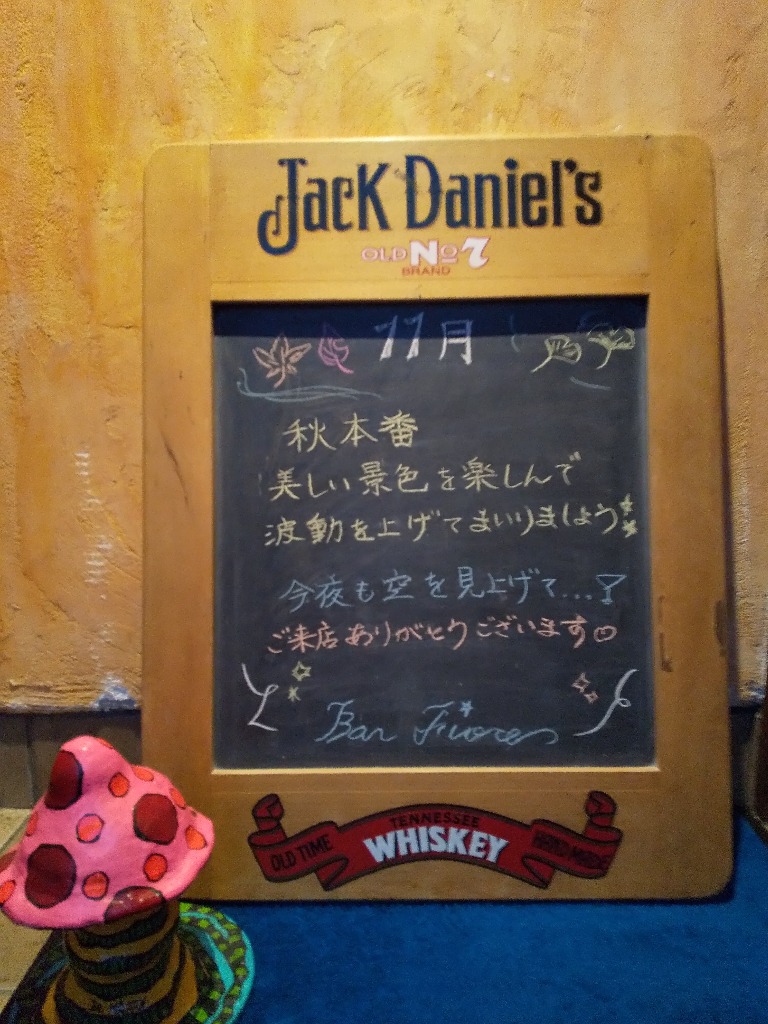 Jack Daniel's
OLD No 7
BRAND
11月
秋本番
美しい景色を楽しんで
波動を上げてまいりましょう
今夜も空を見上げて...
ご来店ありがとうございます
Bar Fiore
TENNESSEE
OLD TIME WHISKEY HAND MADE